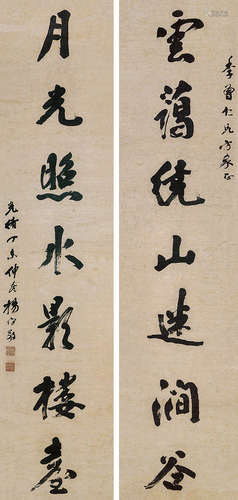 季曾仁兄方家正
雲藹繞山迷澗谷
月光照水影樓臺
光緒丁未仲冬楊守敬